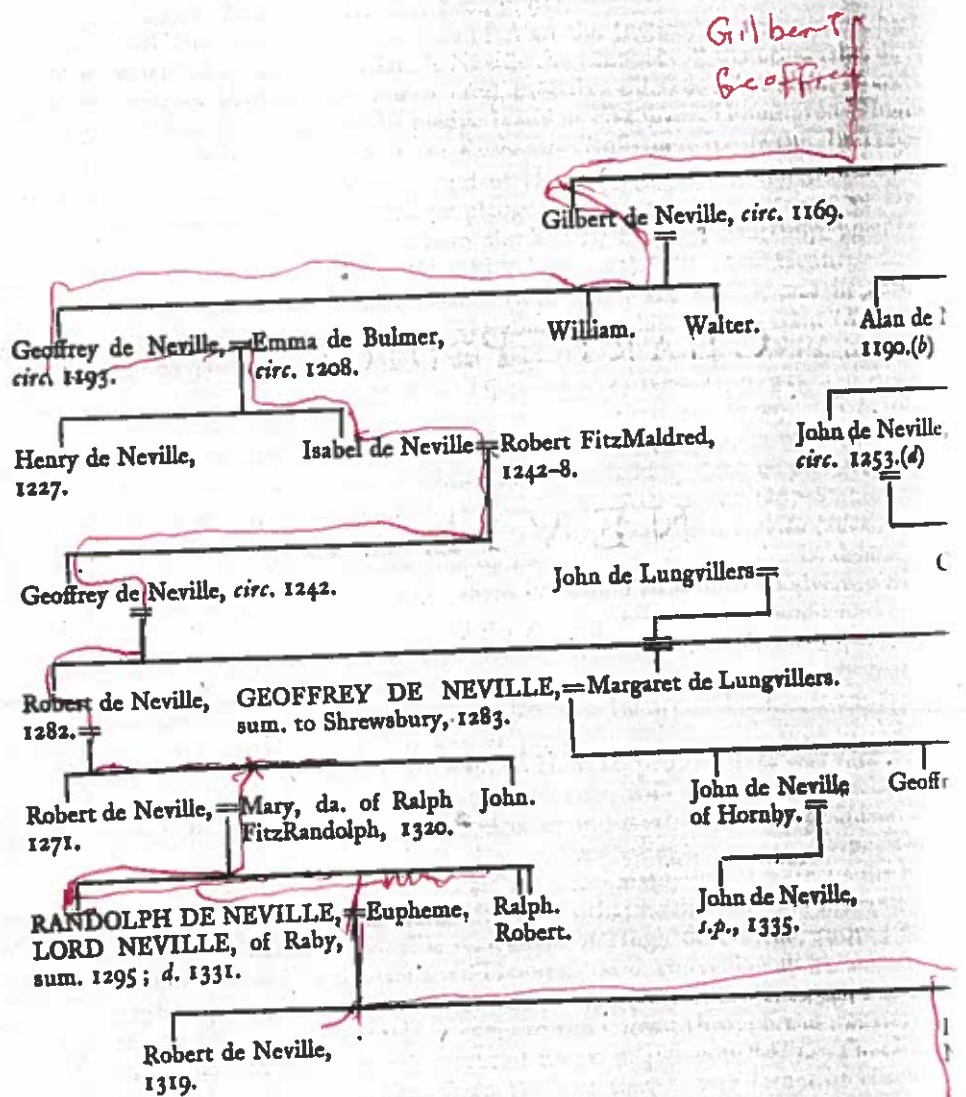 Gilbert
Geoffre
Gilbert de Neville, circ. 1169.
Geoffrey de Neville,=Emma de Bulmer,
circ. 1193. circ. 1208.
William.
Walter.
Alan de
1190.(b)
Henry de Neville,
1227.
Isabel de Neville=Robert FitzMaldred,
1242-8.
John de Neville,
circ. 1253.(d)
Geoffrey de Neville, circ. 1242.
John de Lungvillers=
Robert de Neville,
1282.=
GEOFFREY DE NEVILLE,=Margaret de Lungvillers.
sum. to Shrewsbury, 1283.
Robert de Neville,=Mary, da. of Ralph
1271. FitzRandolph, 1320.
John.
John de Neville
of Hornby.=
Geoffr
RANDOLPH DE NEVILLE,=Eupheme,
LORD NEVILLE, of Raby,
sum. 1295; d. 1331.
Ralph.
Robert.
John de Neville,
s.p., 1335.
Robert de Neville,
1319.